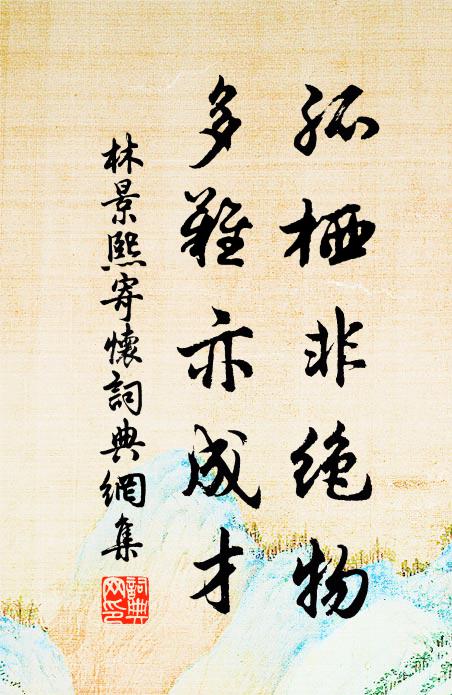 孤栖非绝物
多難亦成才
林景熙寄懷詞典網集
詞典网印